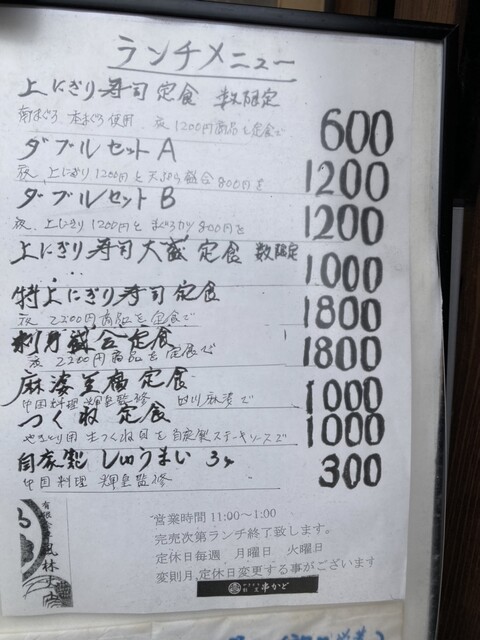 ランチメニュー
上にぎり寿司定食 数限定 600
南まぐろ 本まぐろ使用 夜1200円商品を定食で
ダブルセットA 1200
夜、上にぎり1200円と天ぷら盛合800円を
ダブルセットB 1200
夜、上にぎり1200円とまぐろカツ800円を
上にぎり寿司大盛定食 数限定 1000
特上にぎり寿司定食 1800
夜 2200円商品を定食で
刺身盛合定食 1800
夜 2200円商品を定食で
麻婆豆腐定食 1000
中国料理 輝皇監修 四川麻婆で
つくね定食 1000
やきとり用 生つくね目を自家製ステーキソースで
自家製しゅうまい 3ヶ 300
中国料理 輝皇監修
営業時間 11:00~1:00
完売次第ランチ終了致します。
定休日毎週 月曜日 火曜日
変則月,定休日変更する事がございます
串かど
有限会社 風林火山